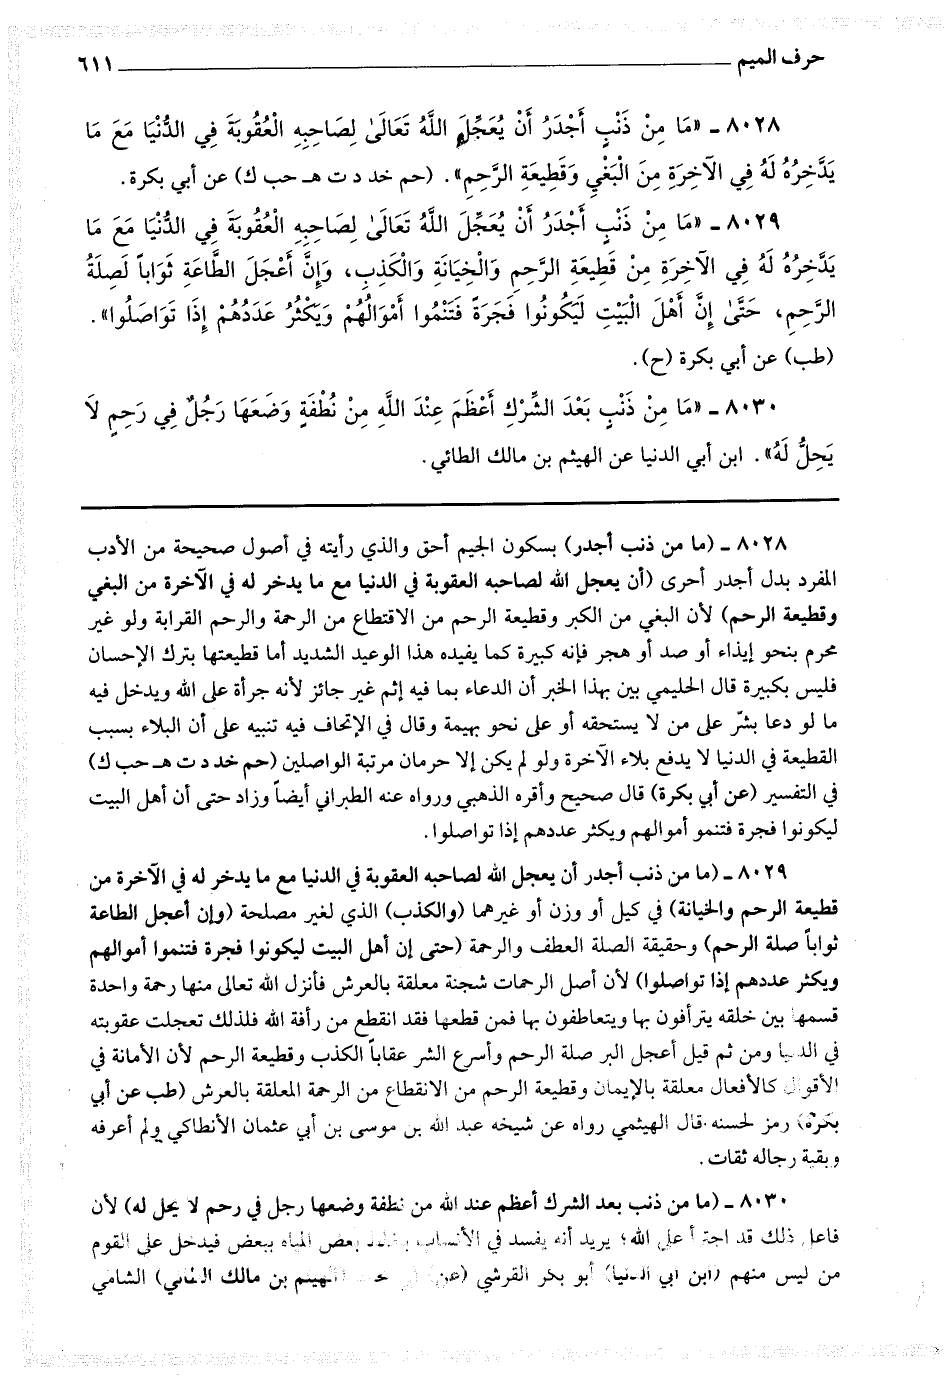 حرف الميم ٦١١
٨٠٢٨ ـ «مَا مِنْ ذَنْبٍ أَجْدَرُ أَنْ يُعَجِّلَ اللَّهُ تَعَالَىٰ لِصَاحِبِهِ الْعُقُوبَةَ فِي الدُّنْيَا مَعَ مَا
يَدَّخِرُهُ لَهُ فِي الآخِرَةِ مِنَ الْبَغْيِ وَقَطِيعَةِ الرَّحِمِ». (حم خد د ت هـ حب ك) عن أبي بكرة.
٨٠٢٩ ـ «مَا مِنْ ذَنْبٍ أَجْدَرُ أَنْ يُعَجِّلَ اللَّهُ تَعَالَىٰ لِصَاحِبِهِ الْعُقُوبَةَ فِي الدُّنْيَا مَعَ مَا
يَدَّخِرُهُ لَهُ فِي الآخِرَةِ مِنْ قَطِيعَةِ الرَّحِمِ وَالْخِيَانَةِ وَالْكَذِبِ، وَإِنَّ أَعْجَلَ الطَّاعَةِ ثَوَاباً لَصِلَةُ
الرَّحِمِ، حَتَّىٰ إِنَّ أَهْلَ الْبَيْتِ لَيَكُونُوا فَجَرَةً فَتَنْمُوا أَمْوَالُهُمْ وَيَكْثُرُ عَدَدُهُمْ إِذَا تَوَاصَلُوا».
(طب) عن أبي بكرة (ح).
٨٠٣٠ ـ «مَا مِنْ ذَنْبٍ بَعْدَ الشِّرْكِ أَعْظَمَ عِنْدَ اللَّهِ مِنْ نُطْفَةٍ وَضَعَهَا رَجُلٌ فِي رَحِمٍ لاَ
يَحِلُّ لَهُ». ابن أبي الدنيا عن الهيثم بن مالك الطائي.
٨٠٢٨ ـ (ما من ذنب أجدر) بسكون الجيم أحق والذي رأيته في أصول صحيحة من الأدب
المفرد بدل أجدر أحرى (أن يعجل الله لصاحبه العقوبة في الدنيا مع ما يدخر له في الآخرة من البغي
وقطيعة الرحم) لأن البغي من الكبر وقطيعة الرحم من الاقتطاع من الرحمة والرحم القرابة ولو غير
محرم بنحو إيذاء أو صد أو هجر فإنه كبيرة كما يفيده هذا الوعيد الشديد أما قطيعتها بترك الإحسان
فليس بكبيرة قال الحليمي بين بهذا الخبر أن الدعاء بما فيه إثم غير جائز لأنه جرأة على الله ويدخل فيه
ما لو دعا بشّر على من لا يستحقه أو على نحو بهيمة وقال في الإتحاف فيه تنبيه على أن البلاء بسبب
القطيعة في الدنيا لا يدفع بلاء الآخرة ولو لم يكن إلا حرمان مرتبة الواصلين (حم خد د ت هـ حب ك)
في التفسير (عن أبي بكرة) قال صحيح وأقره الذهبي ورواه عنه الطبراني أيضاً وزاد حتى أن أهل البيت
ليكونوا فجرة فتنمو أموالهم ويكثر عددهم إذا تواصلوا.
٨٠٢٩ ـ (ما من ذنب أجدر أن يعجل الله لصاحبه العقوبة في الدنيا مع ما يدخر له في الآخرة من
قطيعة الرحم والخيانة) في كيل أو وزن أو غيرهما (والكذب) الذي لغير مصلحة (وإن أعجل الطاعة
ثواباً صلة الرحم) وحقيقة الصلة العطف والرحمة (حتى إن أهل البيت ليكونوا فجرة فتنموا أموالهم
ويكثر عددهم إذا تواصلوا) لأن أصل الرحمات شجنة معلقة بالعرش فأنزل الله تعالى منها رحمة واحدة
قسمها بين خلقه يترأفون بها ويتعاطفون بها فمن قطعها فقد انقطع من رأفة الله فلذلك تعجلت عقوبته
في الدنيا ومن ثم قيل أعجل البر صلة الرحم وأسرع الشر عقاباً الكذب وقطيعة الرحم لأن الأمانة في
الأقوال كالأفعال معلقة بالإيمان وقطيعة الرحم من الانقطاع من الرحمة المعلقة بالعرش (طب عن أبي
بكرة) رمز لحسنه قال الهيثمي رواه عن شيخه عبد الله بن موسى بن أبي عثمان الأنطاكي ولم أعرفه
وبقية رجاله ثقات.
٨٠٣٠ ـ (ما من ذنب بعد الشرك أعظم عند الله من نطفة وضعها رجل في رحم لا يحل له) لأن
فاعل ذلك قد اجترأ على الله؛ يريد أنه يفسد في الأنساب بعض المياه ببعض فيدخل على القوم
من ليس منهم (ابن أبي الدنيا) أبو بكر القرشي (عن الهيثم بن مالك الطائي) الشامي